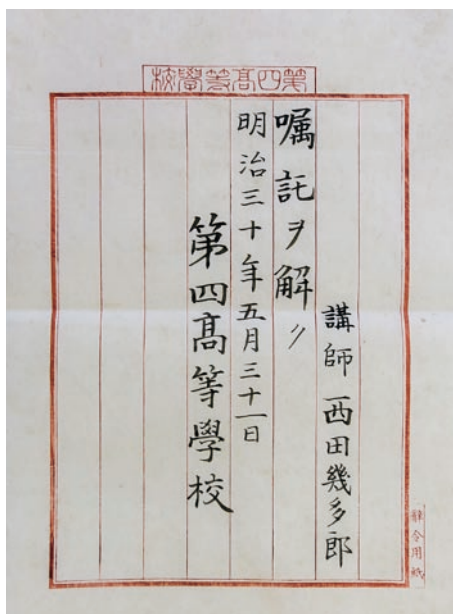 第四高等學校
講師 西田幾多郎
嘱託ヲ解ク
明治三十年五月三十一日
第四高等學校
辭令用紙